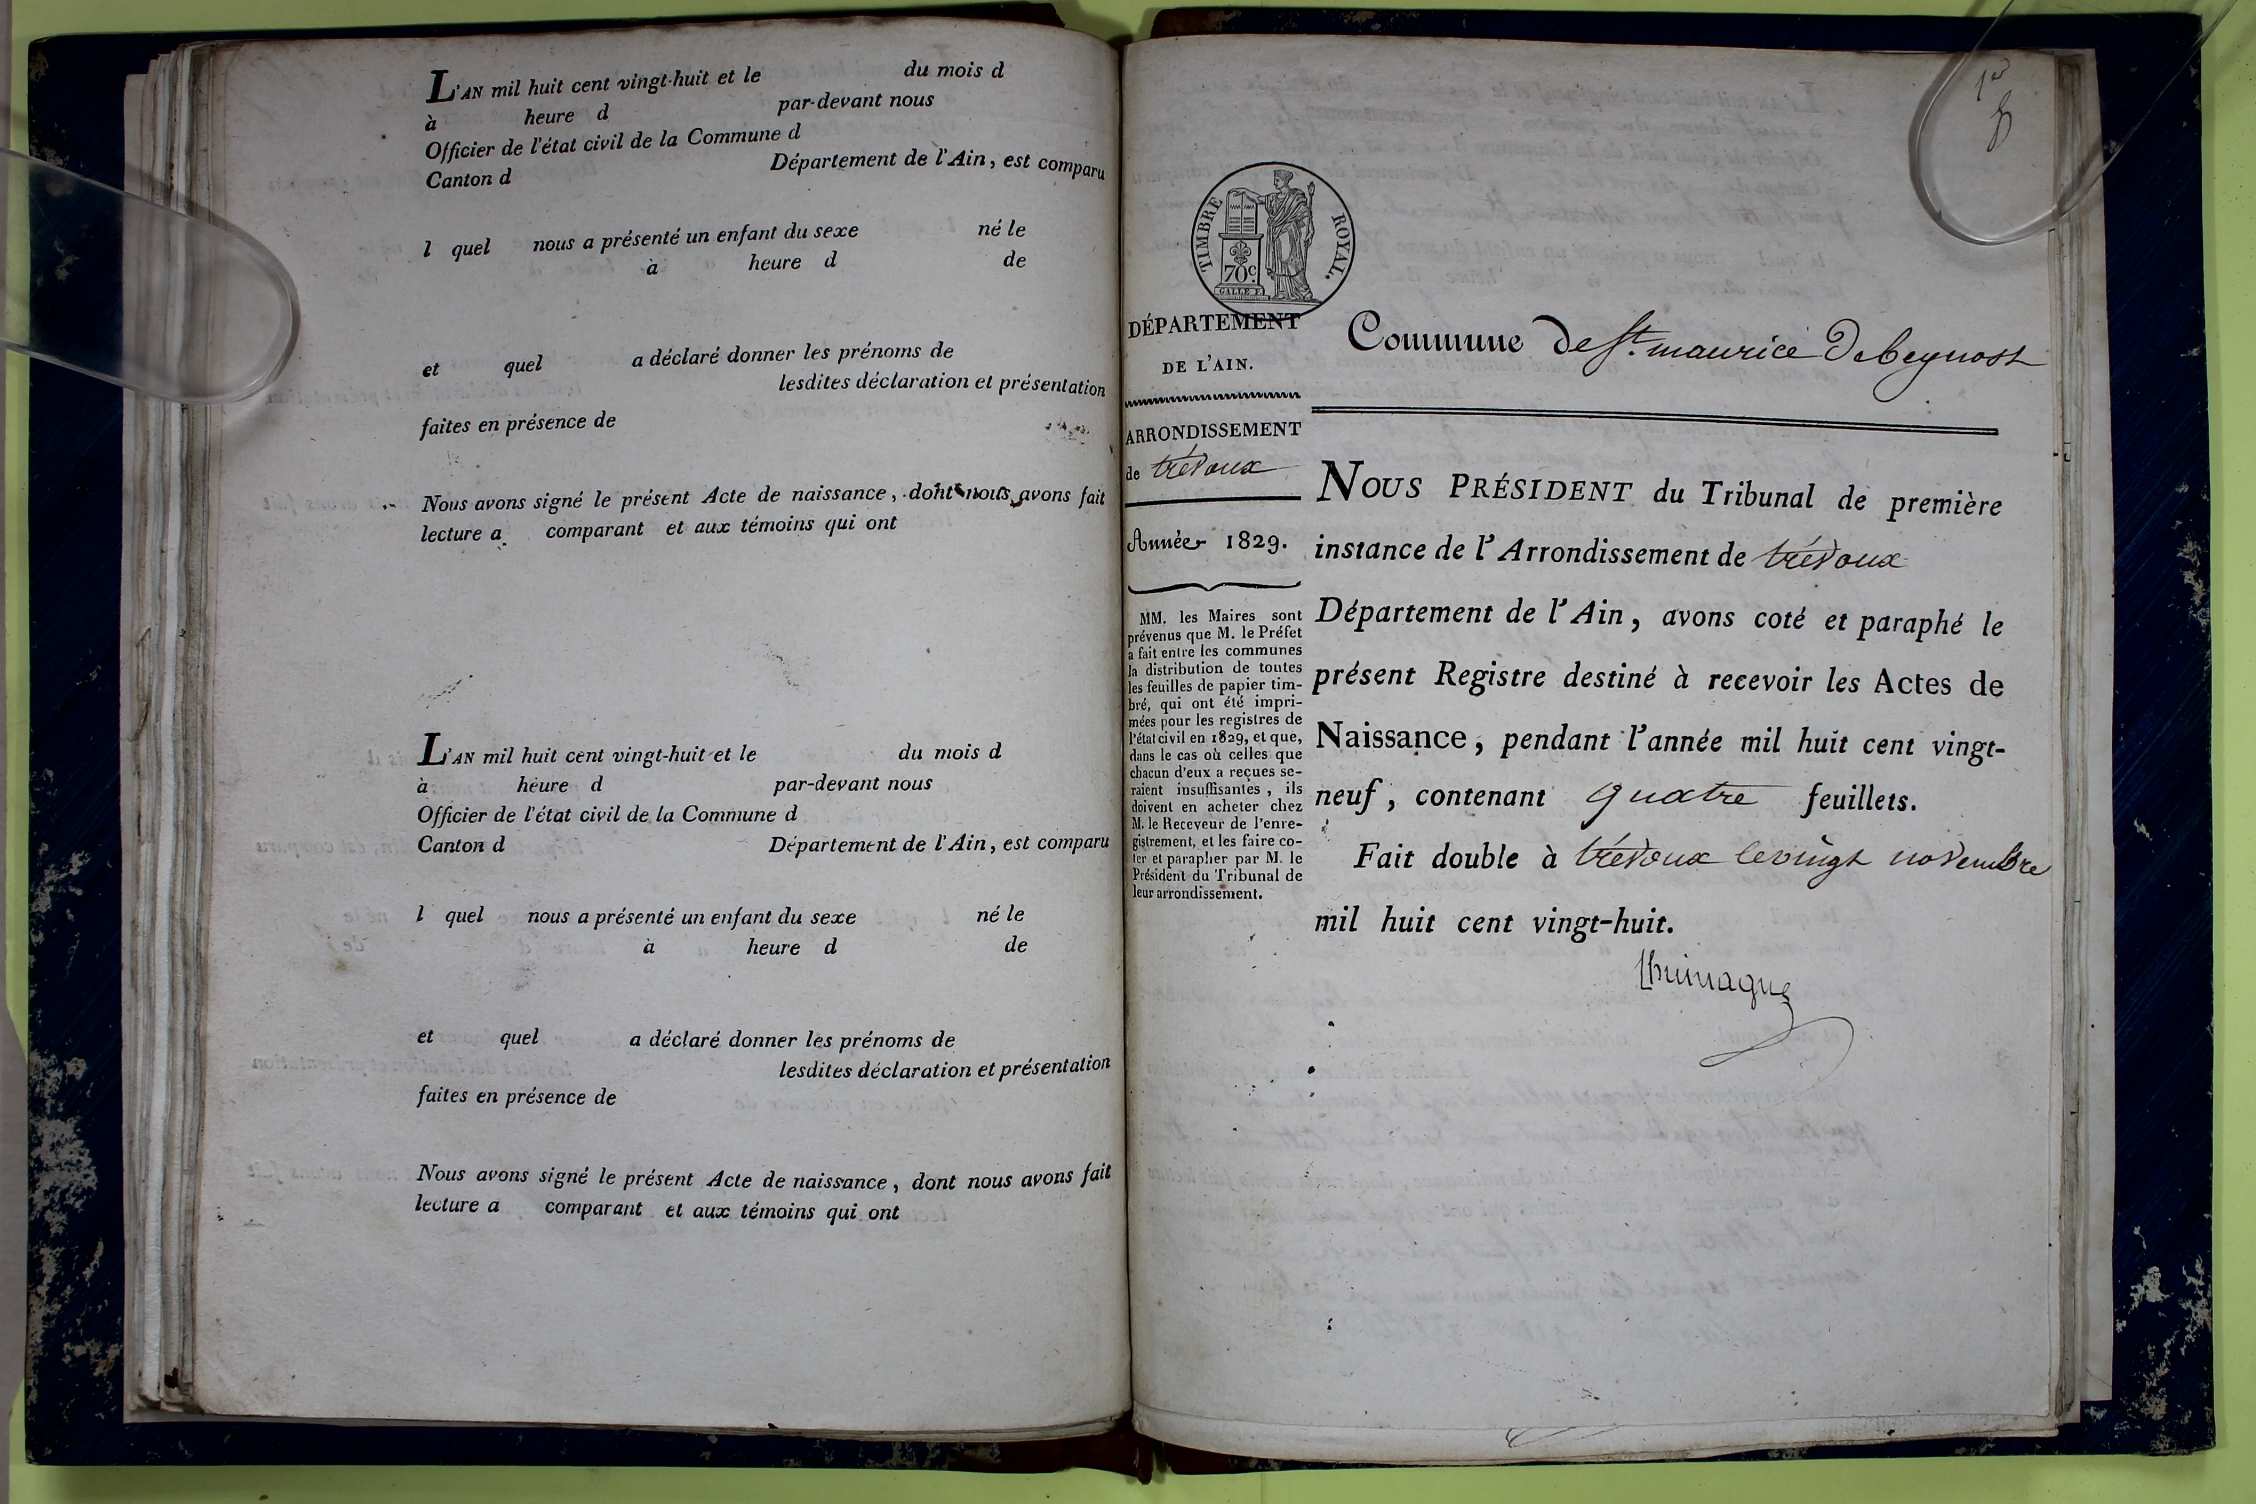 L'AN mil huit cent vingt-huit et le du mois d
à heure d par-devant nous
Officier de l'état civil de la Commune d
Canton d Département de l'Ain, est comparu
l quel nous a présenté un enfant du sexe né le
à heure d de
et quel a déclaré donner les prénoms de
lesdites déclaration et présentation
faites en présence de
Nous avons signé le présent Acte de naissance, dont nous avons fait
lecture a comparant et aux témoins qui ont
L'AN mil huit cent vingt-huit et le du mois d
à heure d par-devant nous
Officier de l'état civil de la Commune d
Canton d Département de l'Ain, est comparu
l quel nous a présenté un enfant du sexe né le
à heure d de
et quel a déclaré donner les prénoms de
lesdites déclaration et présentation
faites en présence de
Nous avons signé le présent Acte de naissance, dont nous avons fait
lecture a comparant et aux témoins qui ont
1er
TIMBRE ROYAL.
70c.
GALLE F.
DÉPARTEMENT
DE L'AIN.
ARRONDISSEMENT
de trévoux
Année 1829.
MM. les Maires sont
prévenus que M. le Préfet
a fait entre les communes
la distribution de toutes
les feuilles de papier tim-
bré, qui ont été impri-
mées pour les registres de
l'état civil en 1829, et que,
dans le cas où celles que
chacun d'eux a reçues se-
raient insuffisantes, ils
doivent en acheter chez
M. le Receveur de l'enre-
gistrement, et les faire co-
ter et parapher par M. le
Président du Tribunal de
leur arrondissement.
Commune de St. maurice de beynost
NOUS PRÉSIDENT du Tribunal de première
instance de l'Arrondissement de trévoux
Département de l'Ain, avons coté et paraphé le
présent Registre destiné à recevoir les Actes de
Naissance, pendant l'année mil huit cent vingt-
neuf, contenant quatre feuillets.
Fait double à trévoux le vingt novembre
mil huit cent vingt-huit.